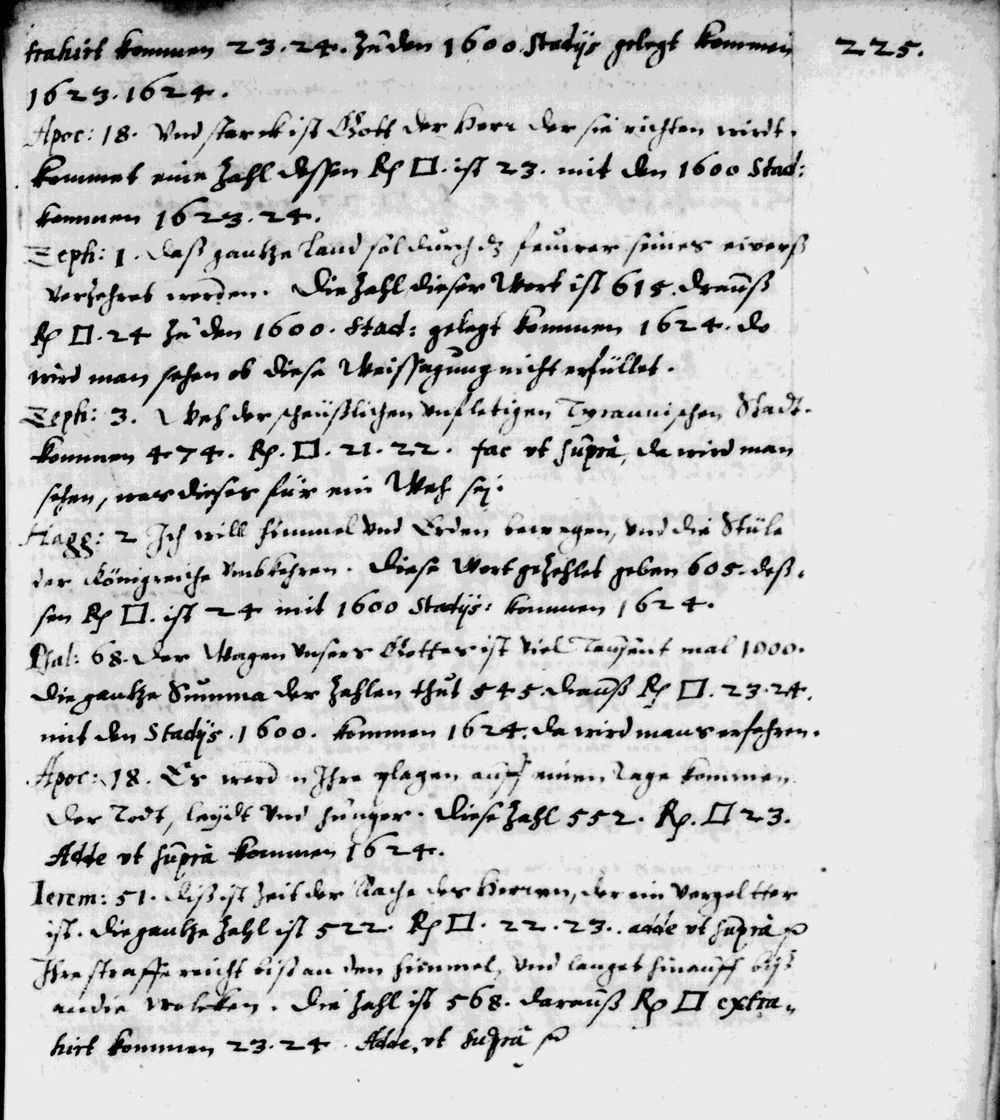 trahirt kommen 23.24. Zu den 1600. Stadijs gelegt kommen
225.
1623.1624.
Apoc: 18. Vnd starck ist Gott der Herr der sie richten wirdt.
kommet eine Zahl dessen R □. ist 23. mit den 1600 Stad:
kommen 1623.24.
Zeph: 1. Daß gantze Land sol durch dz feuwer seines eivers
verzehret werden. Die Zahl dieser Wort ist 615. drauß
R □. 24 Zu den 1600. Stad: gelegt kommen 1624. do
wird man sehen ob diese Weissagung nicht erfüllet.
Zeph: 3. Weh der scheüßlichen vnfletigen Tyrannischen Stadt.
kommen 474. R. □. 21.22. fac vt suprà, da wird man
sehen, was dieses für ein Weh sej.
Hagg: 2 Ich will himmel vnd Erden bewegen, vnd die Stüle
der Königreiche vmbkehren. Diese Wort gezehlet geben 605. deß-
sen R □. ist 24 mit 1600 Stadijs: kommen 1624.
Psal: 68. Der Wagen vnsers Gottes ist viel Tausent mal 1000.
die gantze Summa der Zahlen thut 545. drauß R □. 23.24.
mit den Stadijs. 1600. kommen 1624. da wird mans erfahren.
Apoc: 18. Es werden Ihre plagen auff einen Tage kommen
der Todt, leydt vnd hunger. Diese Zahl 552. R. □ 23.
Adde vt suprà kommen 1624.
Ierem: 51. Diß ist Zeit der Rache des Herren, der ein vergeltter
ist. die gantze Zahl ist 522. R □. 22.23. adde vt suprà
Ihre straffe reicht biß an den himmel, vnd langet hinauff biß
an die wolcken. Die Zahl ist 568. darauß R □ extra-
hirt kommen 23.24. Adde, vt suprà